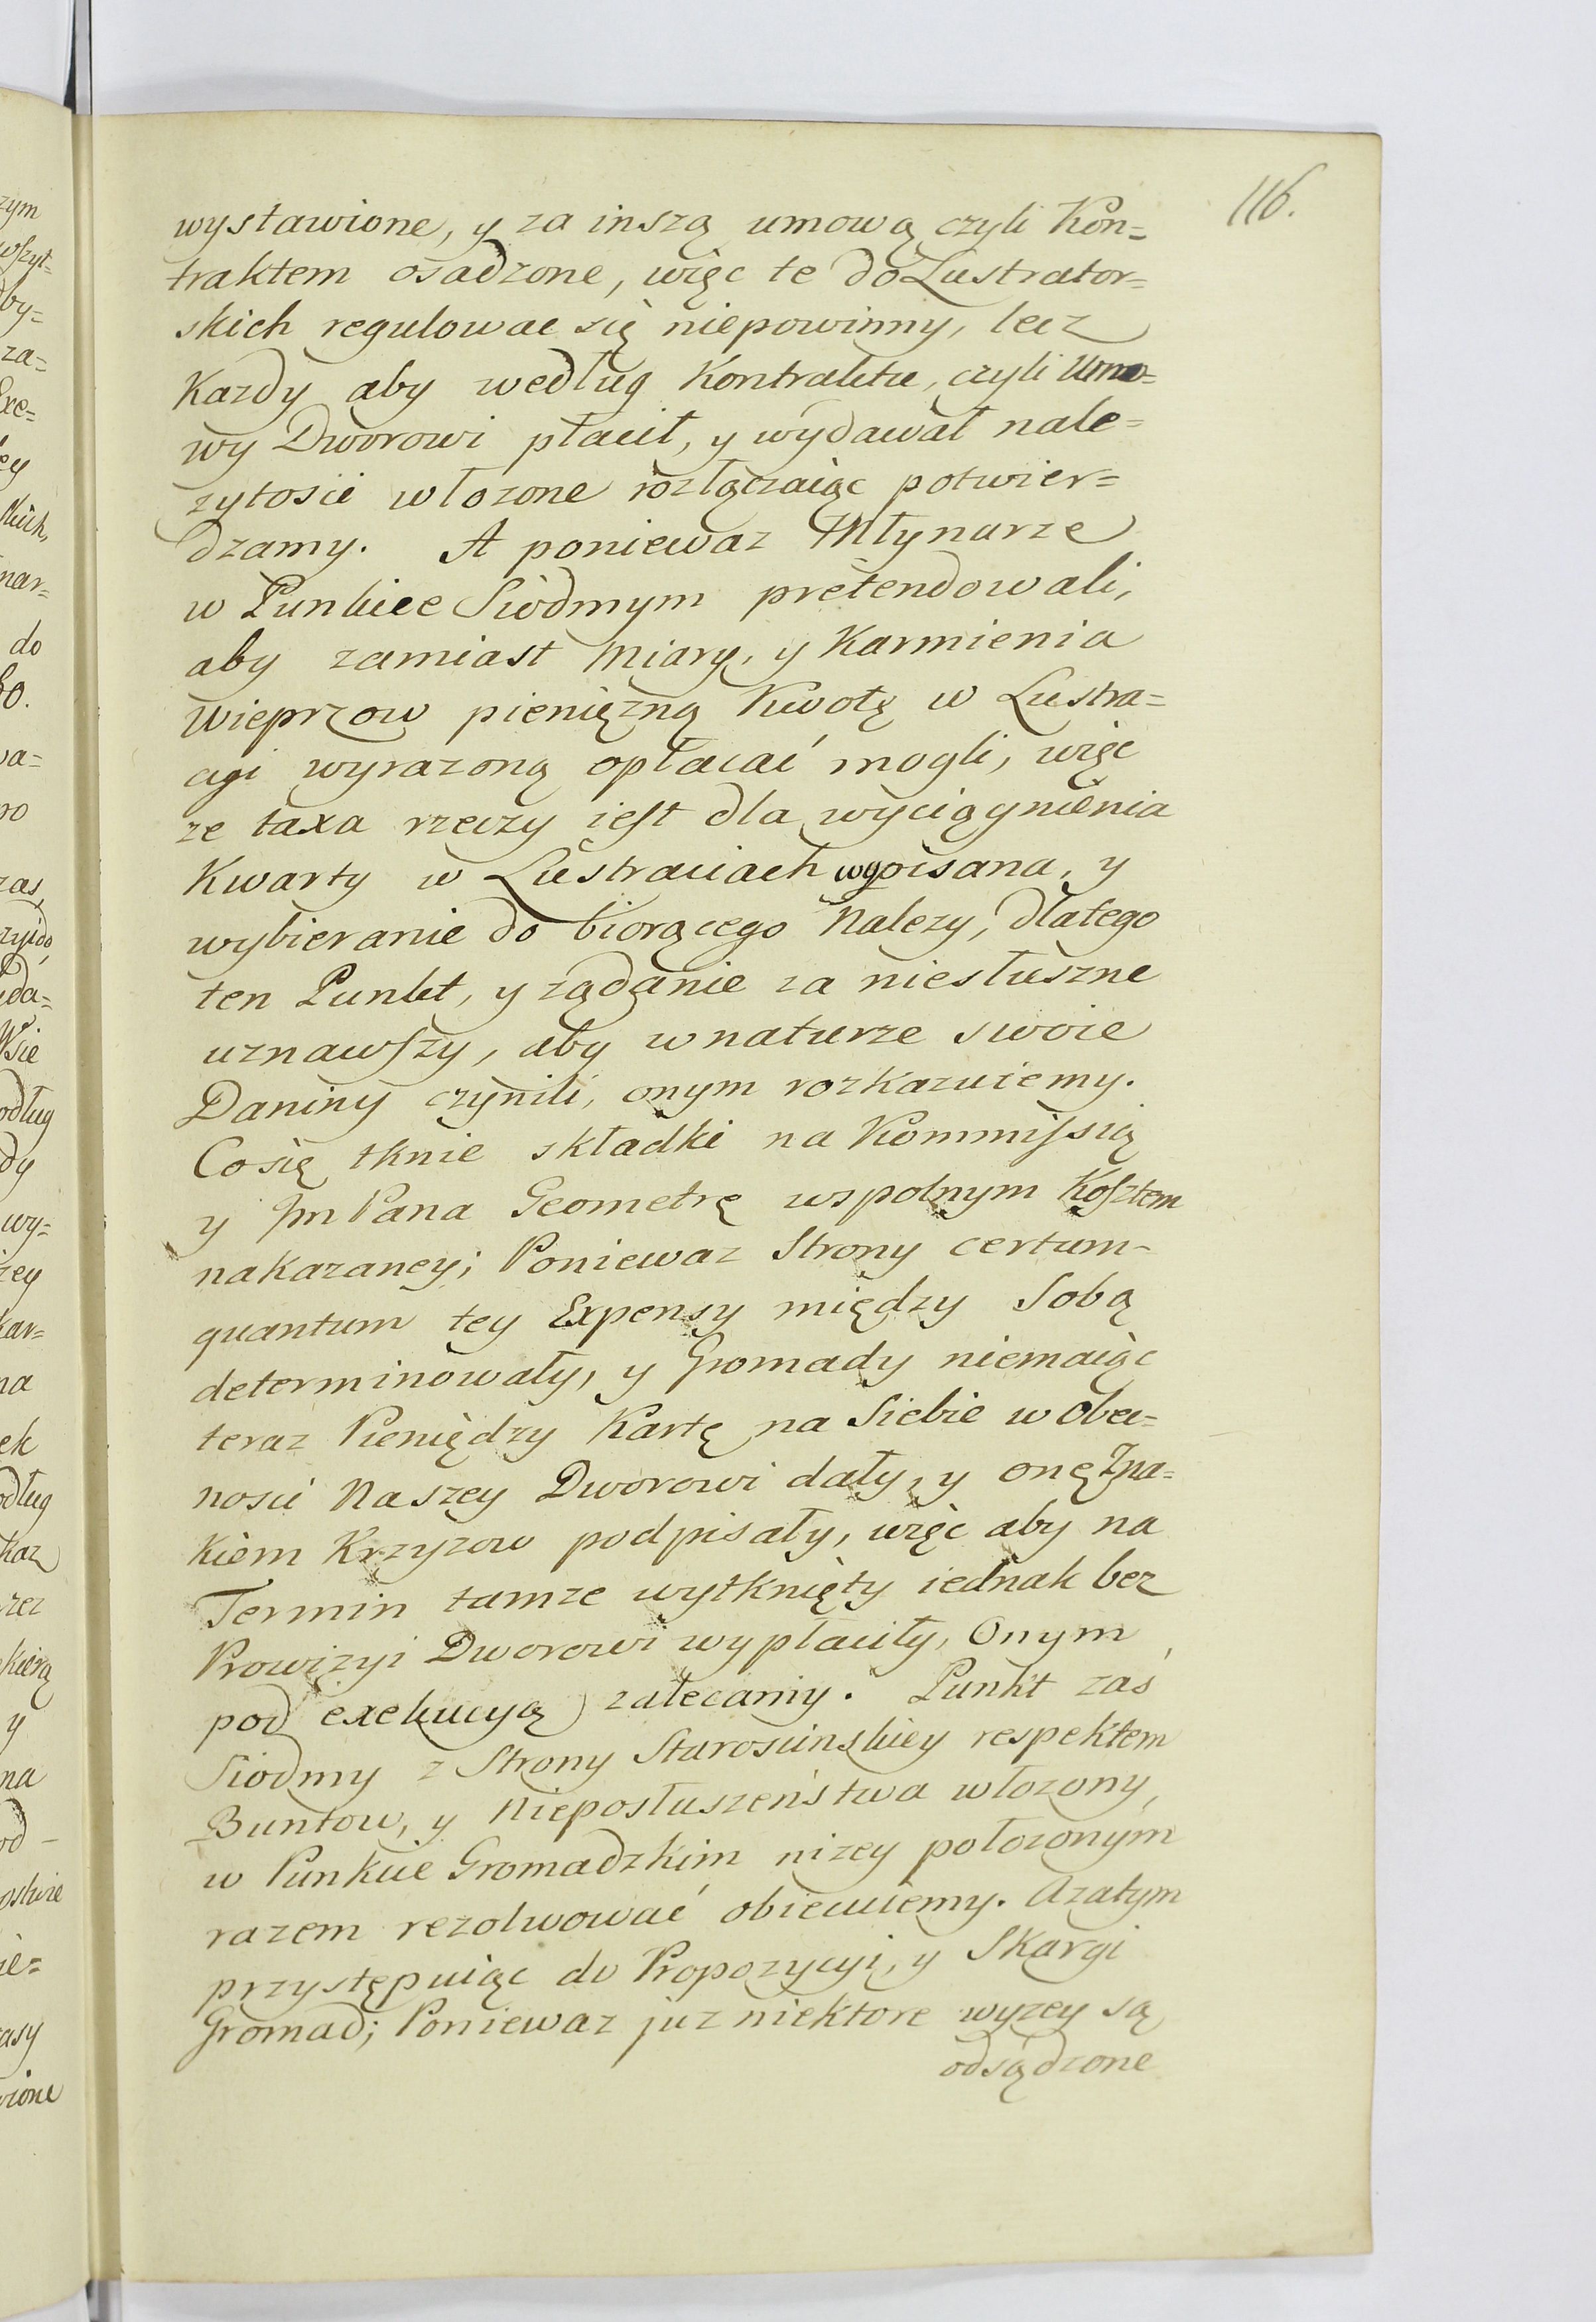 116.
wystawione, y za inszą umową czyli Kon=
traktem osadzone, więc te do Lustrator=
skich regulowac się niepowinny, lecz
Kazdy aby według Kontraktu, czyli Umo=
wy Dworowi płacił, y wydawał nale=
zytosci włozone rozłączaiąc potwier=
dzamy. A poniewaz Młynarze
w Punkcie Siodmym pretendowali,
aby zamiast Miary, y Karmienia
Wieprzow pienięzną Kwotę w Lustra=
cyi wyrazoną opłacać mogli, więc
ze taxa rzeczy iest dla wyciągnienia
Kwarty w Lustraciach wypisana, y
wybieranie do biorącego Nalezy, dlatego
ten Punkt, y ządanie za niesłuszne
uznawszy, aby w naturze swoie
Daniny czynili, onym rozkazuiemy.
Co się tknie składki na Kommissią
y Jm Pana Geometrę wspolnym Kosztem
nakazaney; Poniewaz Strony certum-
quantum tey Expensy między Sobą
determinowały, y Gromady niemaiąc
teraz Pieniędzy Kartę na Siebie w obec=
nosci Naszey Dworowi dały, y onę Zna=
kiem Krzyzow podpisały, więc aby na
Termin tamze wytknięty iednak bez
Prowizyi Dworowi wypłaciły, Onym
pod exekucyą zalecamy. Punkt zaś
Siodmy z Strony Starościnskiey respektem
Buntow, y Nieposłuszeństwa włozony,
w Punkcie Gromadzkim nizey połozonym
razem rezolwować obiecuiemy. Azatym
przystępuiąc do Propozycyi, y Skargi
Gromad; Poniewaz juz niektore wyzey są
odsądzone